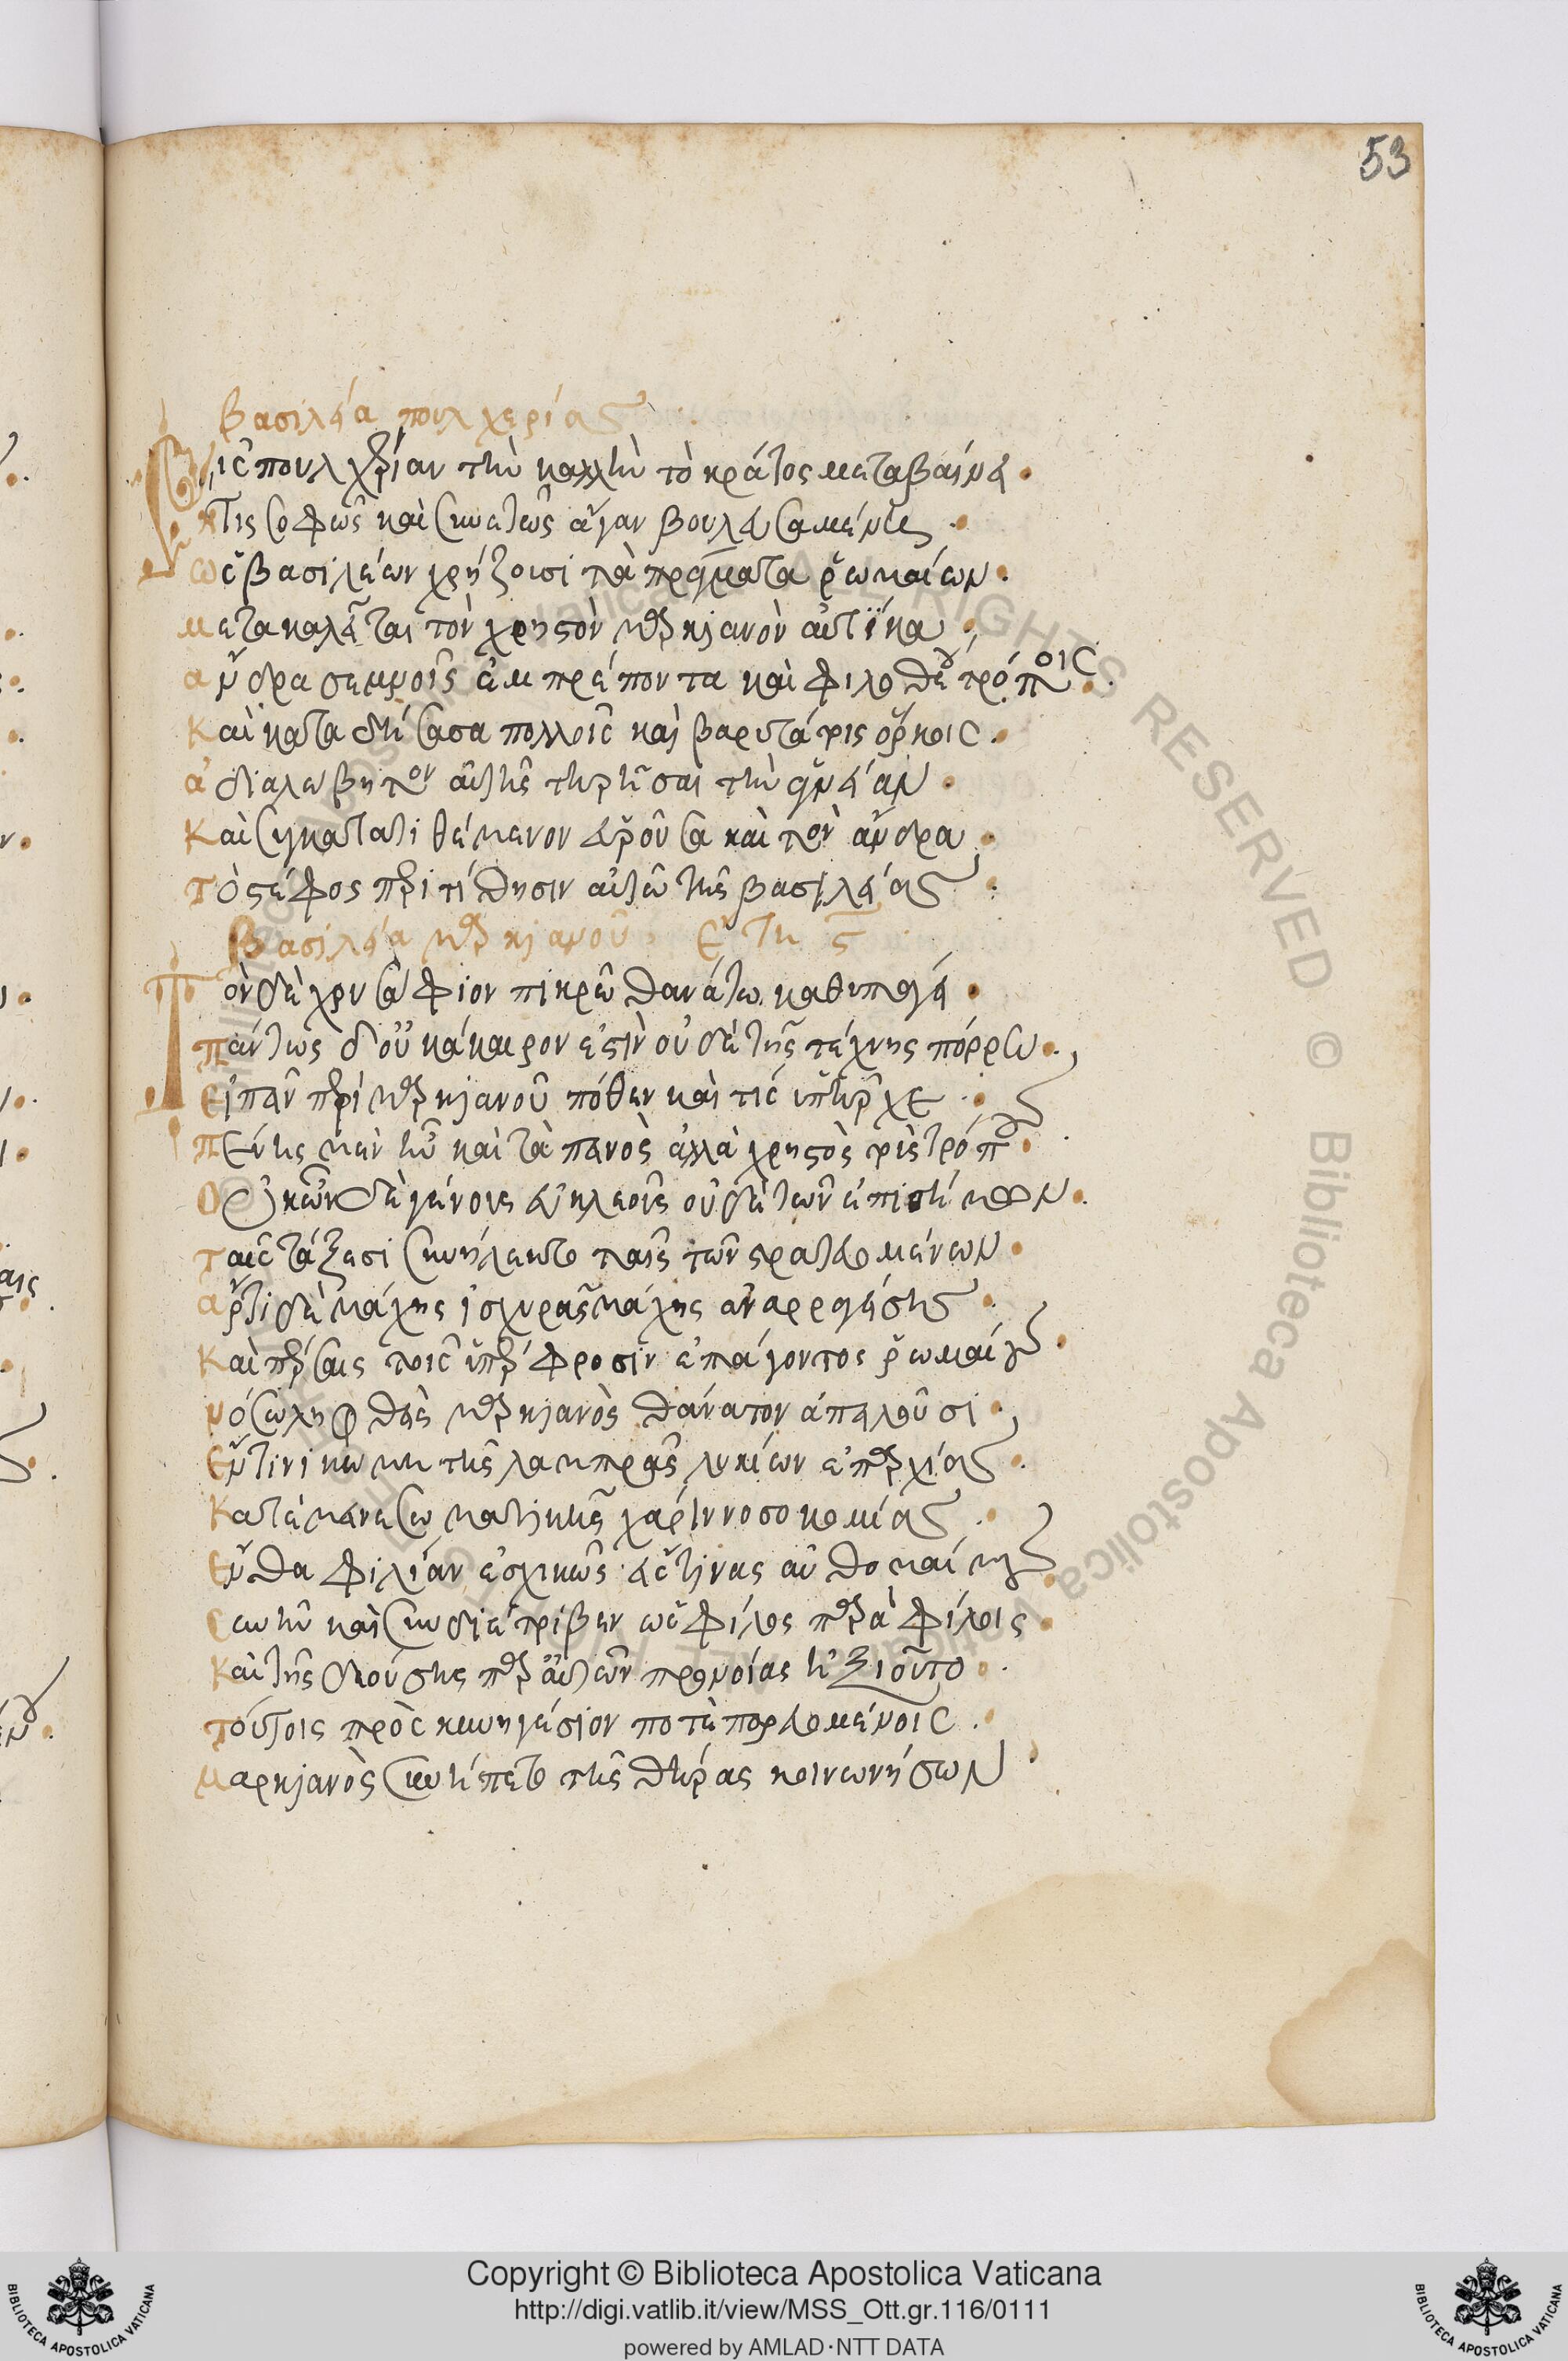 53
βασιλεία πουλχερίας
Εἰς πουλχερίαν τὴν καλὴν τὸ κράτος μεταβαίνει.
ἥτις σοφῶς καὶ συνετῶς ἄγαν βουλευσαμένη
ὡς βασιλέων χρήζουσι τὰ πράγματα ῥωμαίων.
μετακαλεῖται τὸν χρηστὸν μαρκιανὸν αὐτίκα
ἄνδρα σεμνοῖς ἐμπρέποντα καὶ φιλοθέου τρόποις.
Καὶ καταδήσασα πολλοῖς καὶ βαρυτάτοις ὅρκοις.
ἀδιαλώβητον αὐτῆς τηρῆσαι τὴν ἁγνείαν.
Καὶ συγκατατιθέμενον εὑροῦσα καὶ τὸν ἄνδρα
τὸ στέφος περιτίθησιν αὐτῷ τῆς βασιλείας
Βασιλεία μαρκιανοῦ ἔτη ϛ
Τὸν δὲ χρυσάφιον πικρῷ θανάτῳ καθυπάγει.
πάντως δ' οὐκ ἄκαιρον ἐστὶν οὐδὲ τῆς τέχνης πόρρω.
εἰπεῖν περὶ μαρκιανοῦ πόθεν καὶ τίς ὑπῆρχε
πένης μὲν ἦν καὶ ταπεινὸς ἀλλὰ χρηστὸς τοὺς τρόπους
Οὐκ ὢν δὲ γένους εὐκλεοῦς οὐδὲ τῶν ἐπισήμων.
ταῖς τάξεσι συνήλεκτο ταῖς τῶν στρατευομένων.
ἄρτι δὲ μάχης ἰσχυρᾶς μάχης ἀναρραγείσης
Καὶ πέρσαις τοῖς ὑπέρφροσιν ἐπάγοντος ῥωμαίους.
νόσῳ ληφθεὶς μαρκιανὸς θάνατον ἀπειλοῦσι
ἔν τινι κώμῃ τῆς λαμπρᾶς λυκίων ἐπαρχίας
Κατέμεινε σωματικῆς χάριν νοσοκομίας
ἔνθα φιλίαν ἐσχηκὼς εἴς τινας αὐθομαίμους
συνῆν καὶ συνδιέτριβεν ὡς φίλος παρὰ φίλοις
Καὶ τῆς δεούσης παρ' αὐτῶν προνοίας ἠξιοῦτο.
τούτοις πρὸς κυνηγέσιον ποτὲ πορευομένοις.
μαρκιανὸς συνείπετο τῆς θήρας κοινωνήσων
Copyright © Biblioteca Apostolica Vaticana
http://digi.vatlib.it/view/MSS_Ott.gr.116/0111
powered by AMLAD·NTT DATA